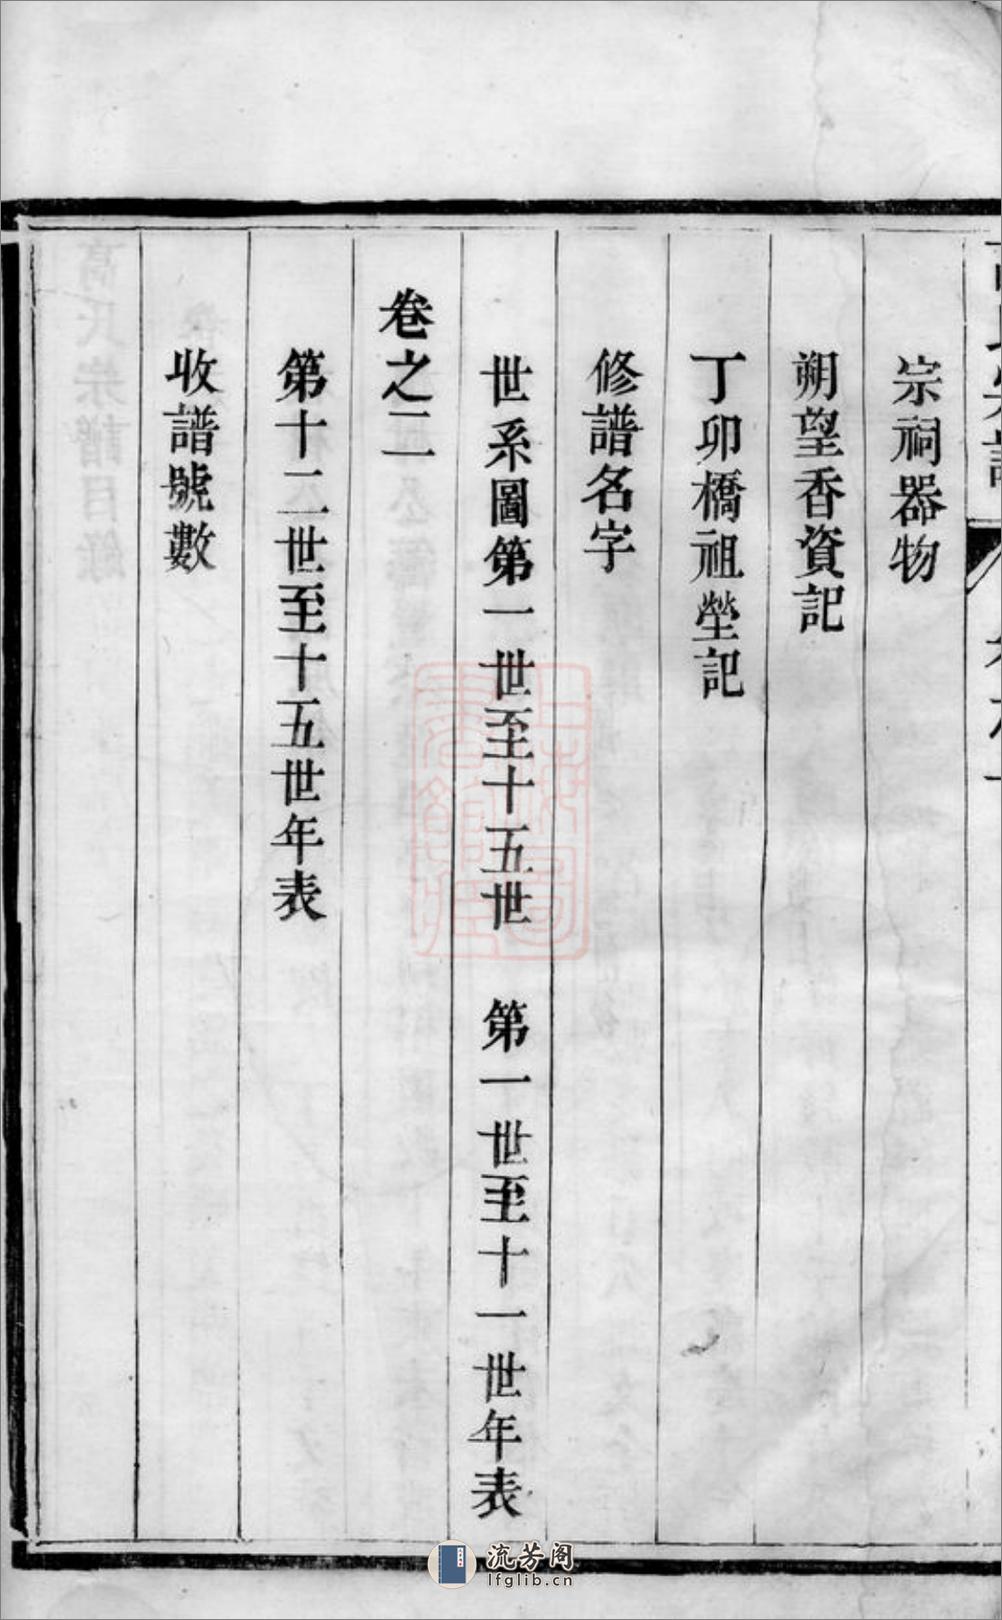 宗祠器物
朔望香資記
丁卯橋祖塋記
修譜名字
世系圖第一世至十五世　第一世至十一世年表
卷之二
第十二世至十五世年表
收譜號數
流芳阁
lfglib.cn